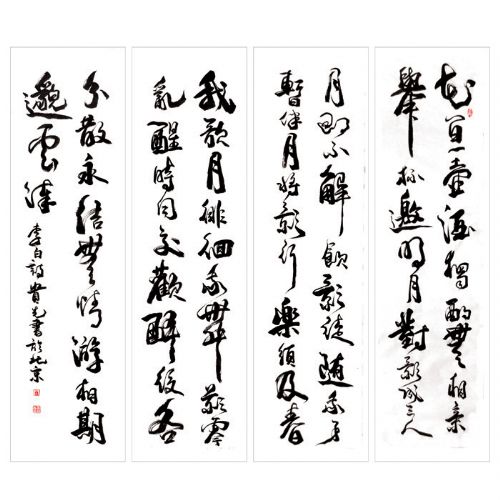 花間一壺酒獨酌無相親
舉杯邀明月對影成三人
月既不解飲影徒随我身
暫伴月將影行樂須及春
我歌月徘徊我舞影零
亂醒時同交歡醉後各
分散永結無情游相期
邈雲漢
李白詩貴書於北京